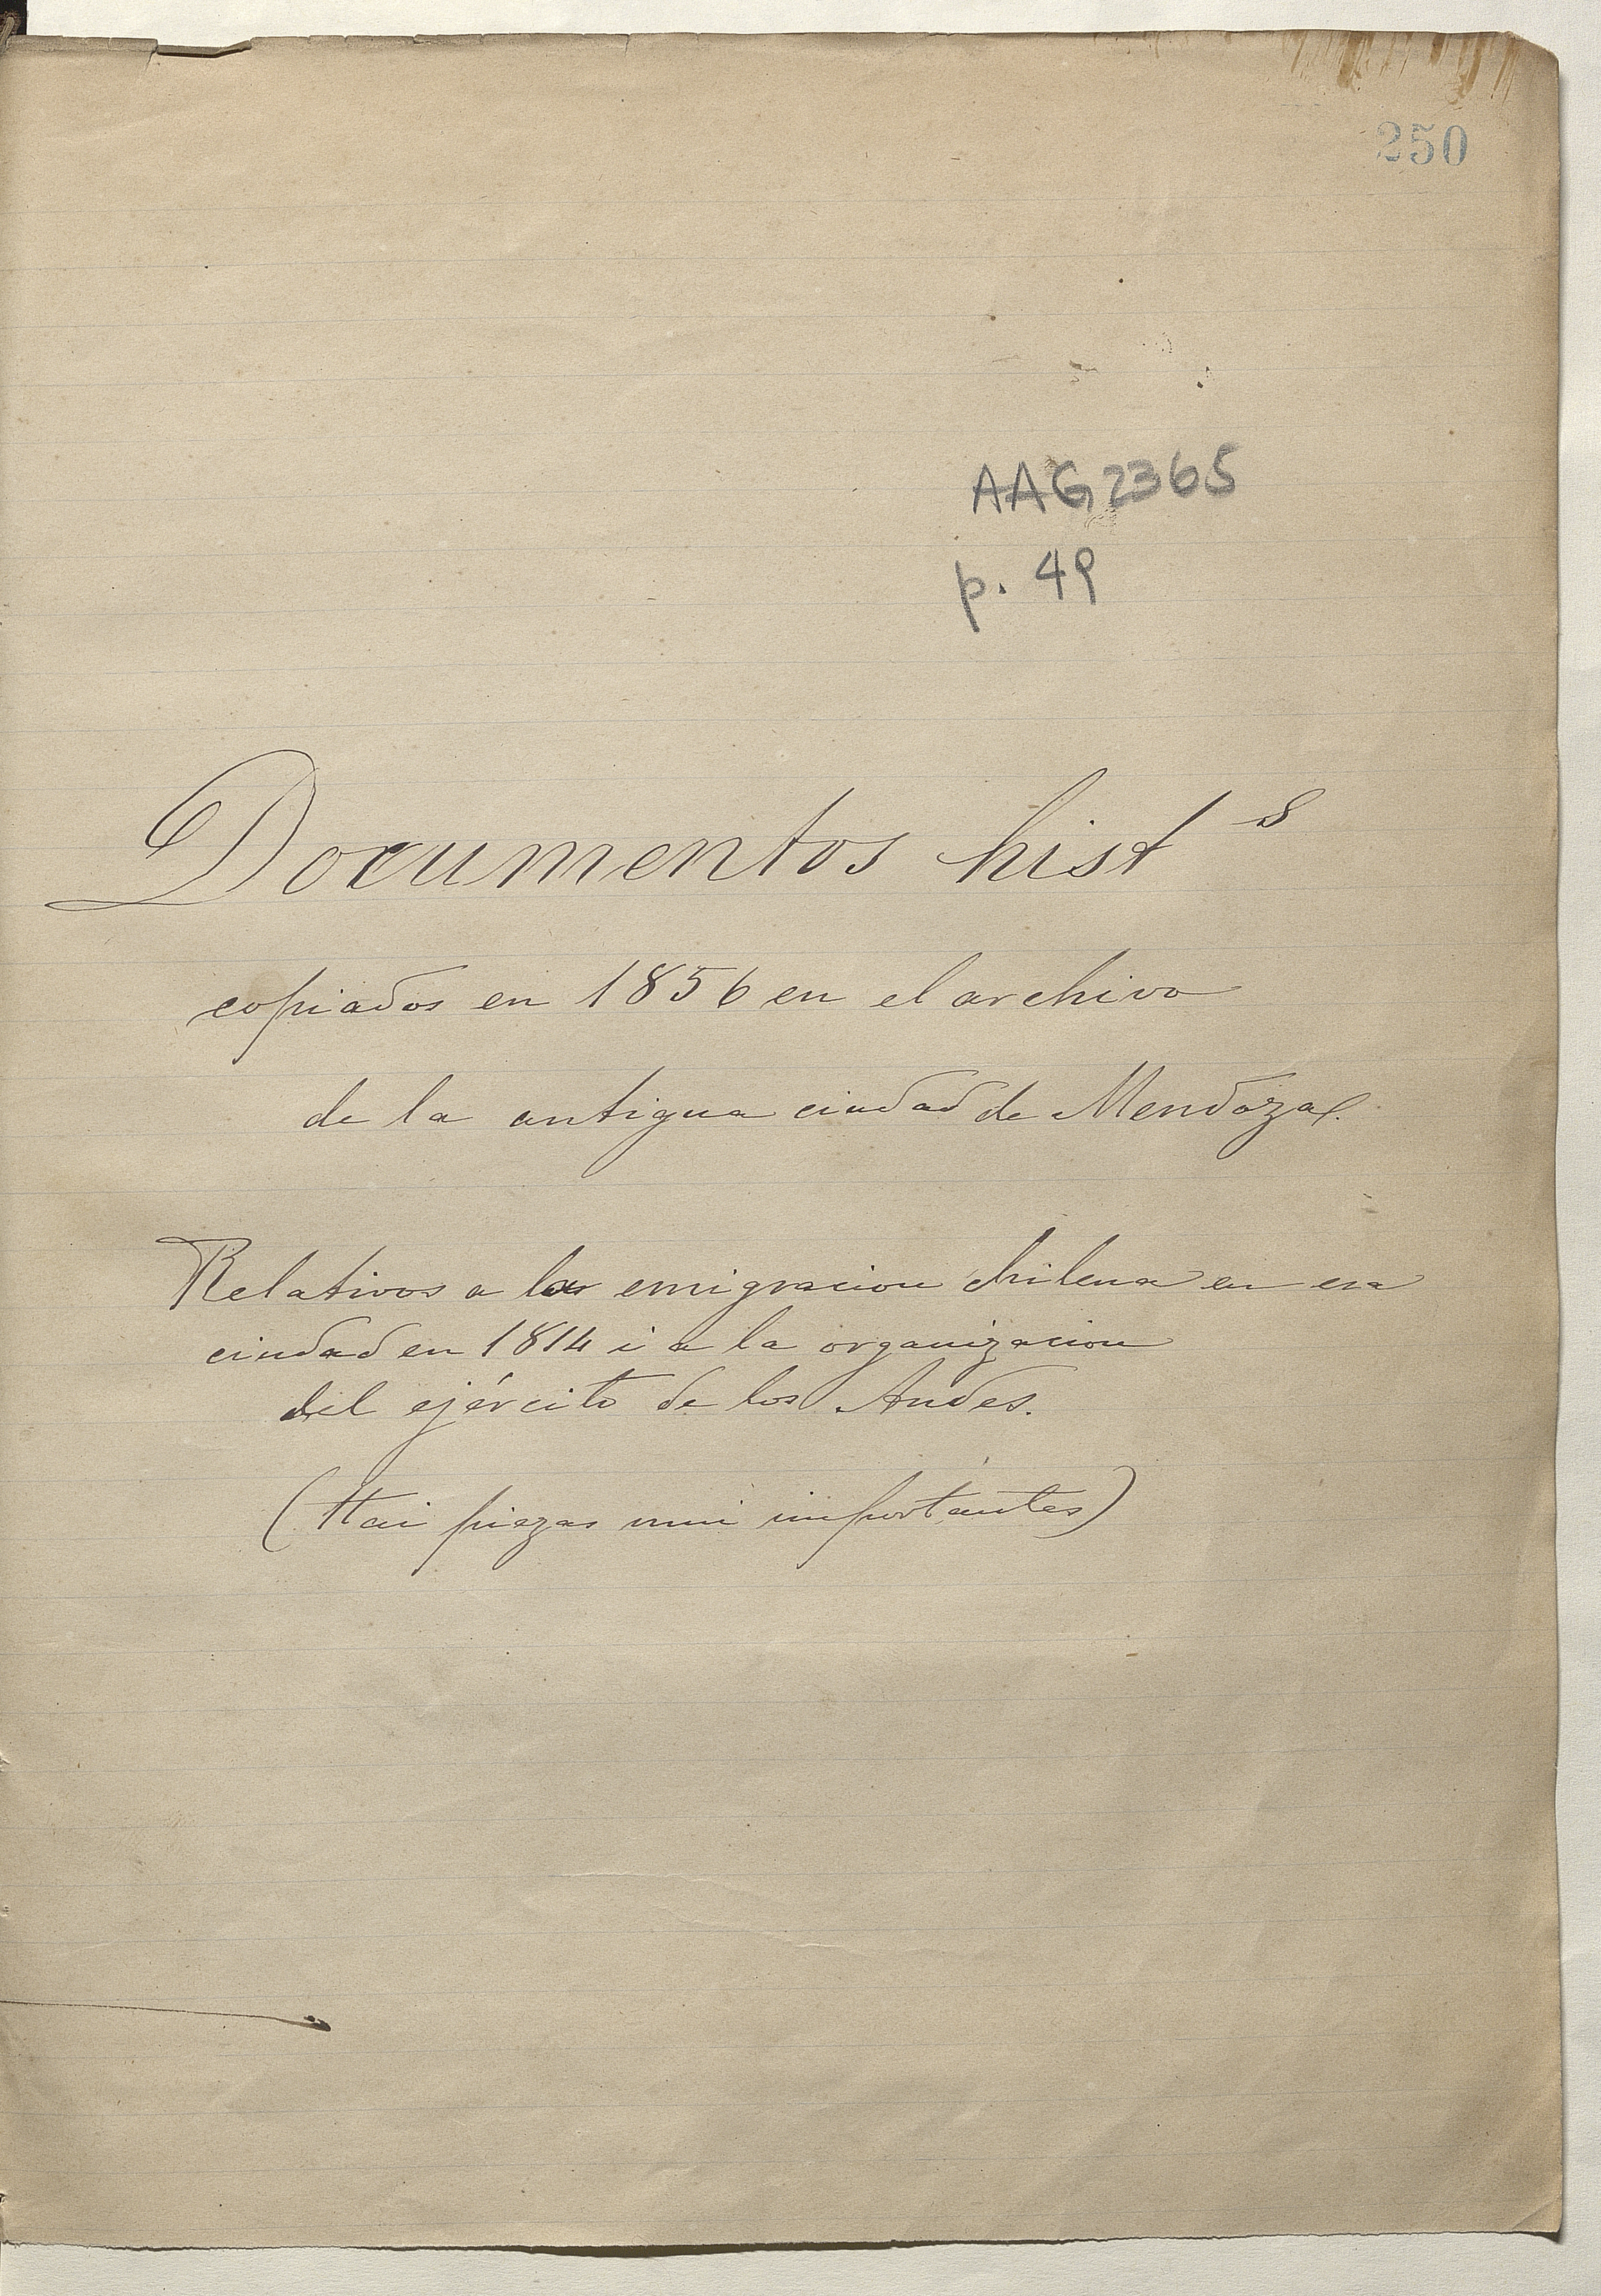 250
AAG 2365
p. 49
Documentos hist s
copiados en 1856 en el archivo
de la antigua ciudad de Mendoza.
Relativos a la emigracion chilena en esa
ciudad en 1814 i a la organizacion
del ejército de los Andes.
(Hai piezas mui importantes)